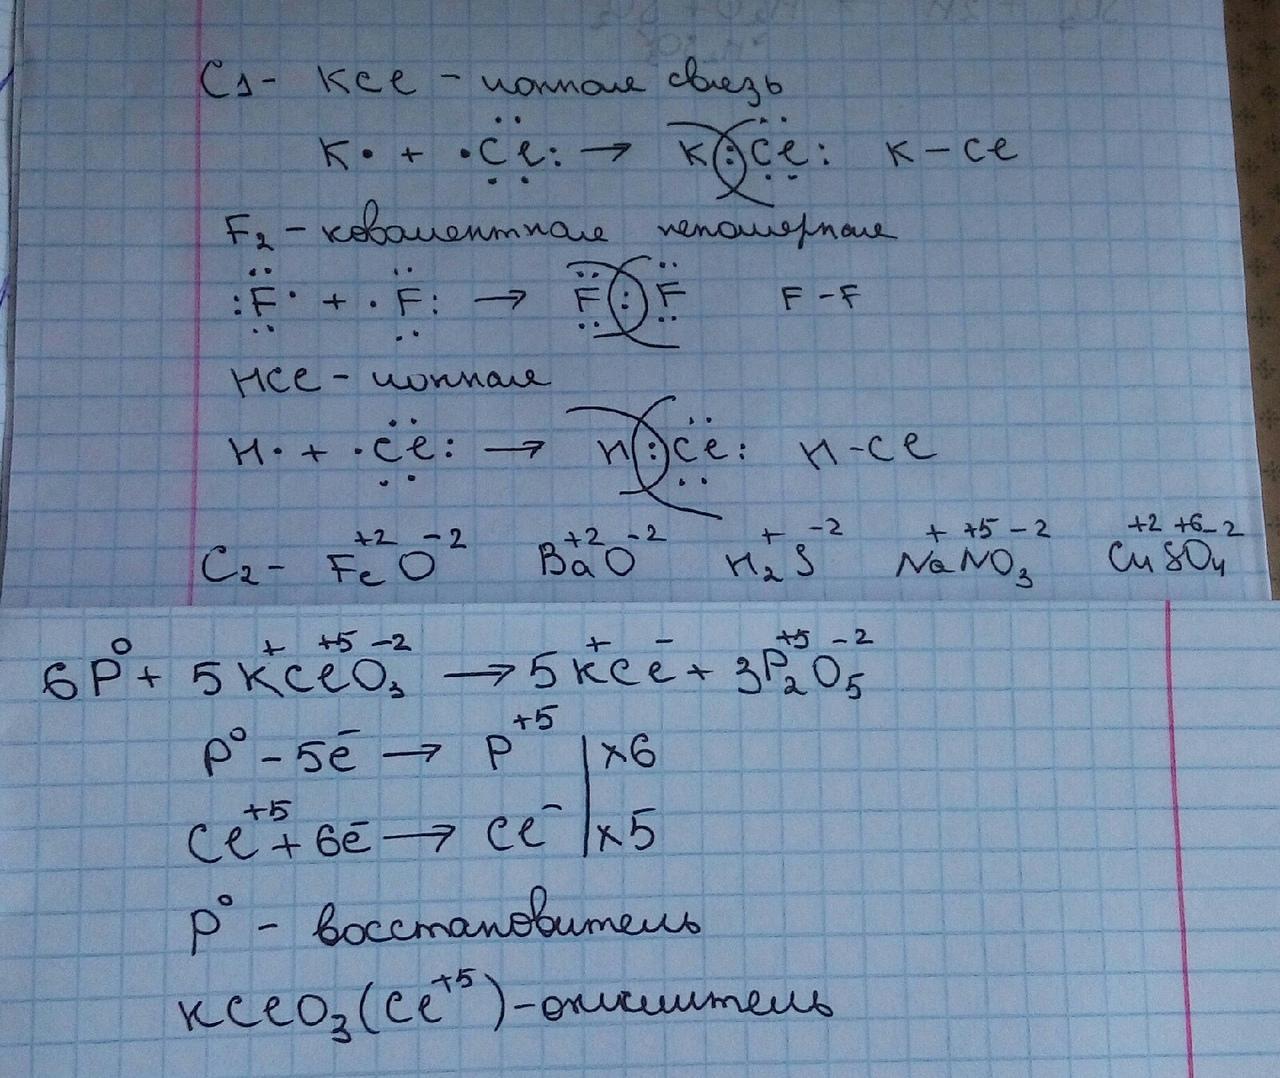 C1- KCl - ионная связь
K· + ·Cl: → K:Cl: K-Cl
F₂ - ковалентная неполярная
:F· + ·F: → F:F F-F
HCl - ионная
H· + ·Cl: → H:Cl: H-Cl
C2- Fe⁺²O⁻² Ba⁺²O⁻² H₂⁺S⁻² Na⁺N⁺⁵O₃⁻² Cu⁺²S⁺⁶O₄⁻²
6P⁰ + 5K⁺Cl⁺⁵O₃⁻² → 5K⁺Cl⁻ + 3P₂⁺⁵O₅⁻²
P⁰ - 5e̅ → P⁺⁵ | x6
Cl⁺⁵ + 6e̅ → Cl⁻ | x5
P⁰ - восстановитель
KClO₃(Cl⁺⁵) - окислитель